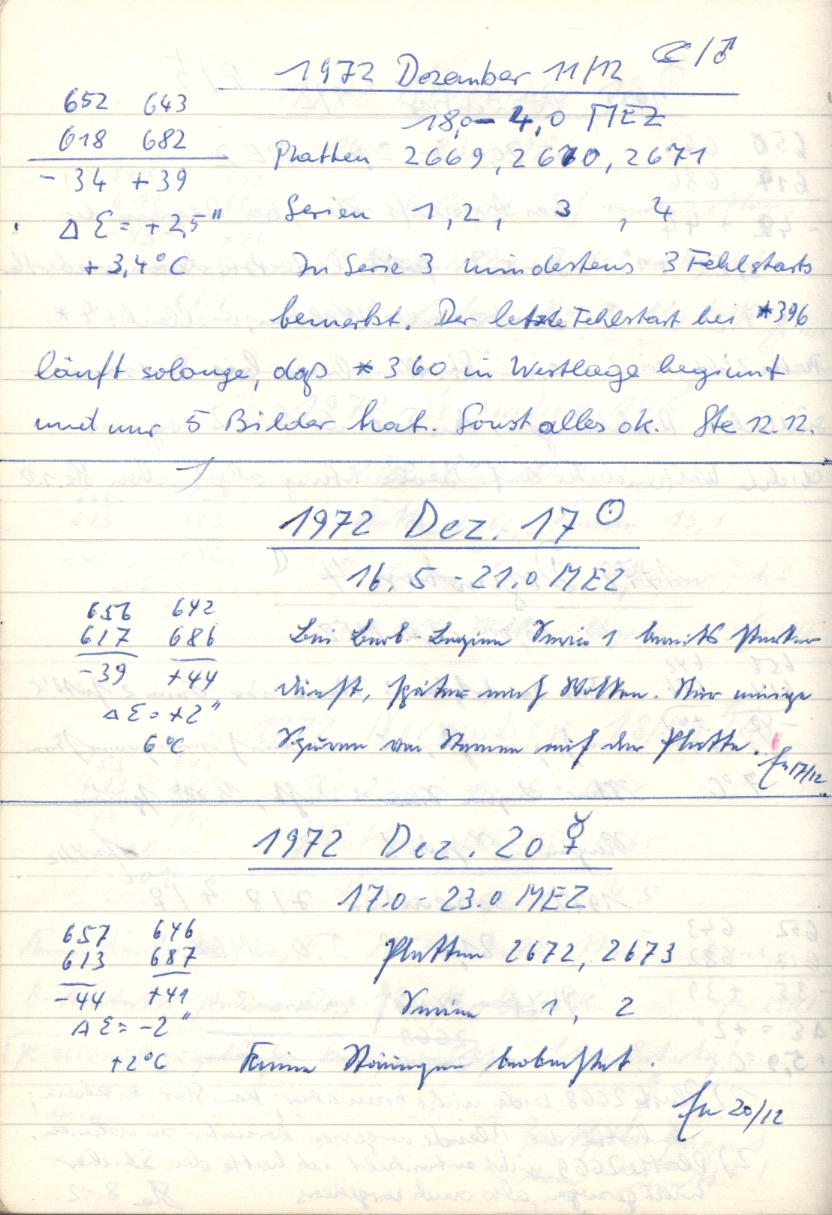 1972 Dezember 11/12 ☾/♂
18,0 - 4,0 MEZ
652 643
618 682
- 34 + 39
Δ ε = + 2,5"
+ 3,4°C
Platten 2669, 2670, 2671
Serien 1, 2, 3, 4
In Serie 3 mindestens 3 Fehlstarts
bemerkt. Der letzte Fehlstart bei *396
läuft solange, daß * 360 in Westlage beginnt
und nur 5 Bilder hat. Sonst alles ok. Ste 12.12.
1972 Dez. 17 ☉
16.5 - 21.0 MEZ
656 642
617 686
-39 +44
Δ ε = +2"
6°C
Bei Beob.-Beginn Serie 1 bereits starker
Dunst, später noch Wolken. Nur einige
Spuren von Sternen auf der Platte.
17/12
1972 Dez. 20 ☿
17.0 - 23.0 MEZ
657 646
613 687
-44 +41
Δ ε = -2"
+2°C
Platten 2672, 2673
Serien 1, 2
Keine Störungen beobachtet.
20/12